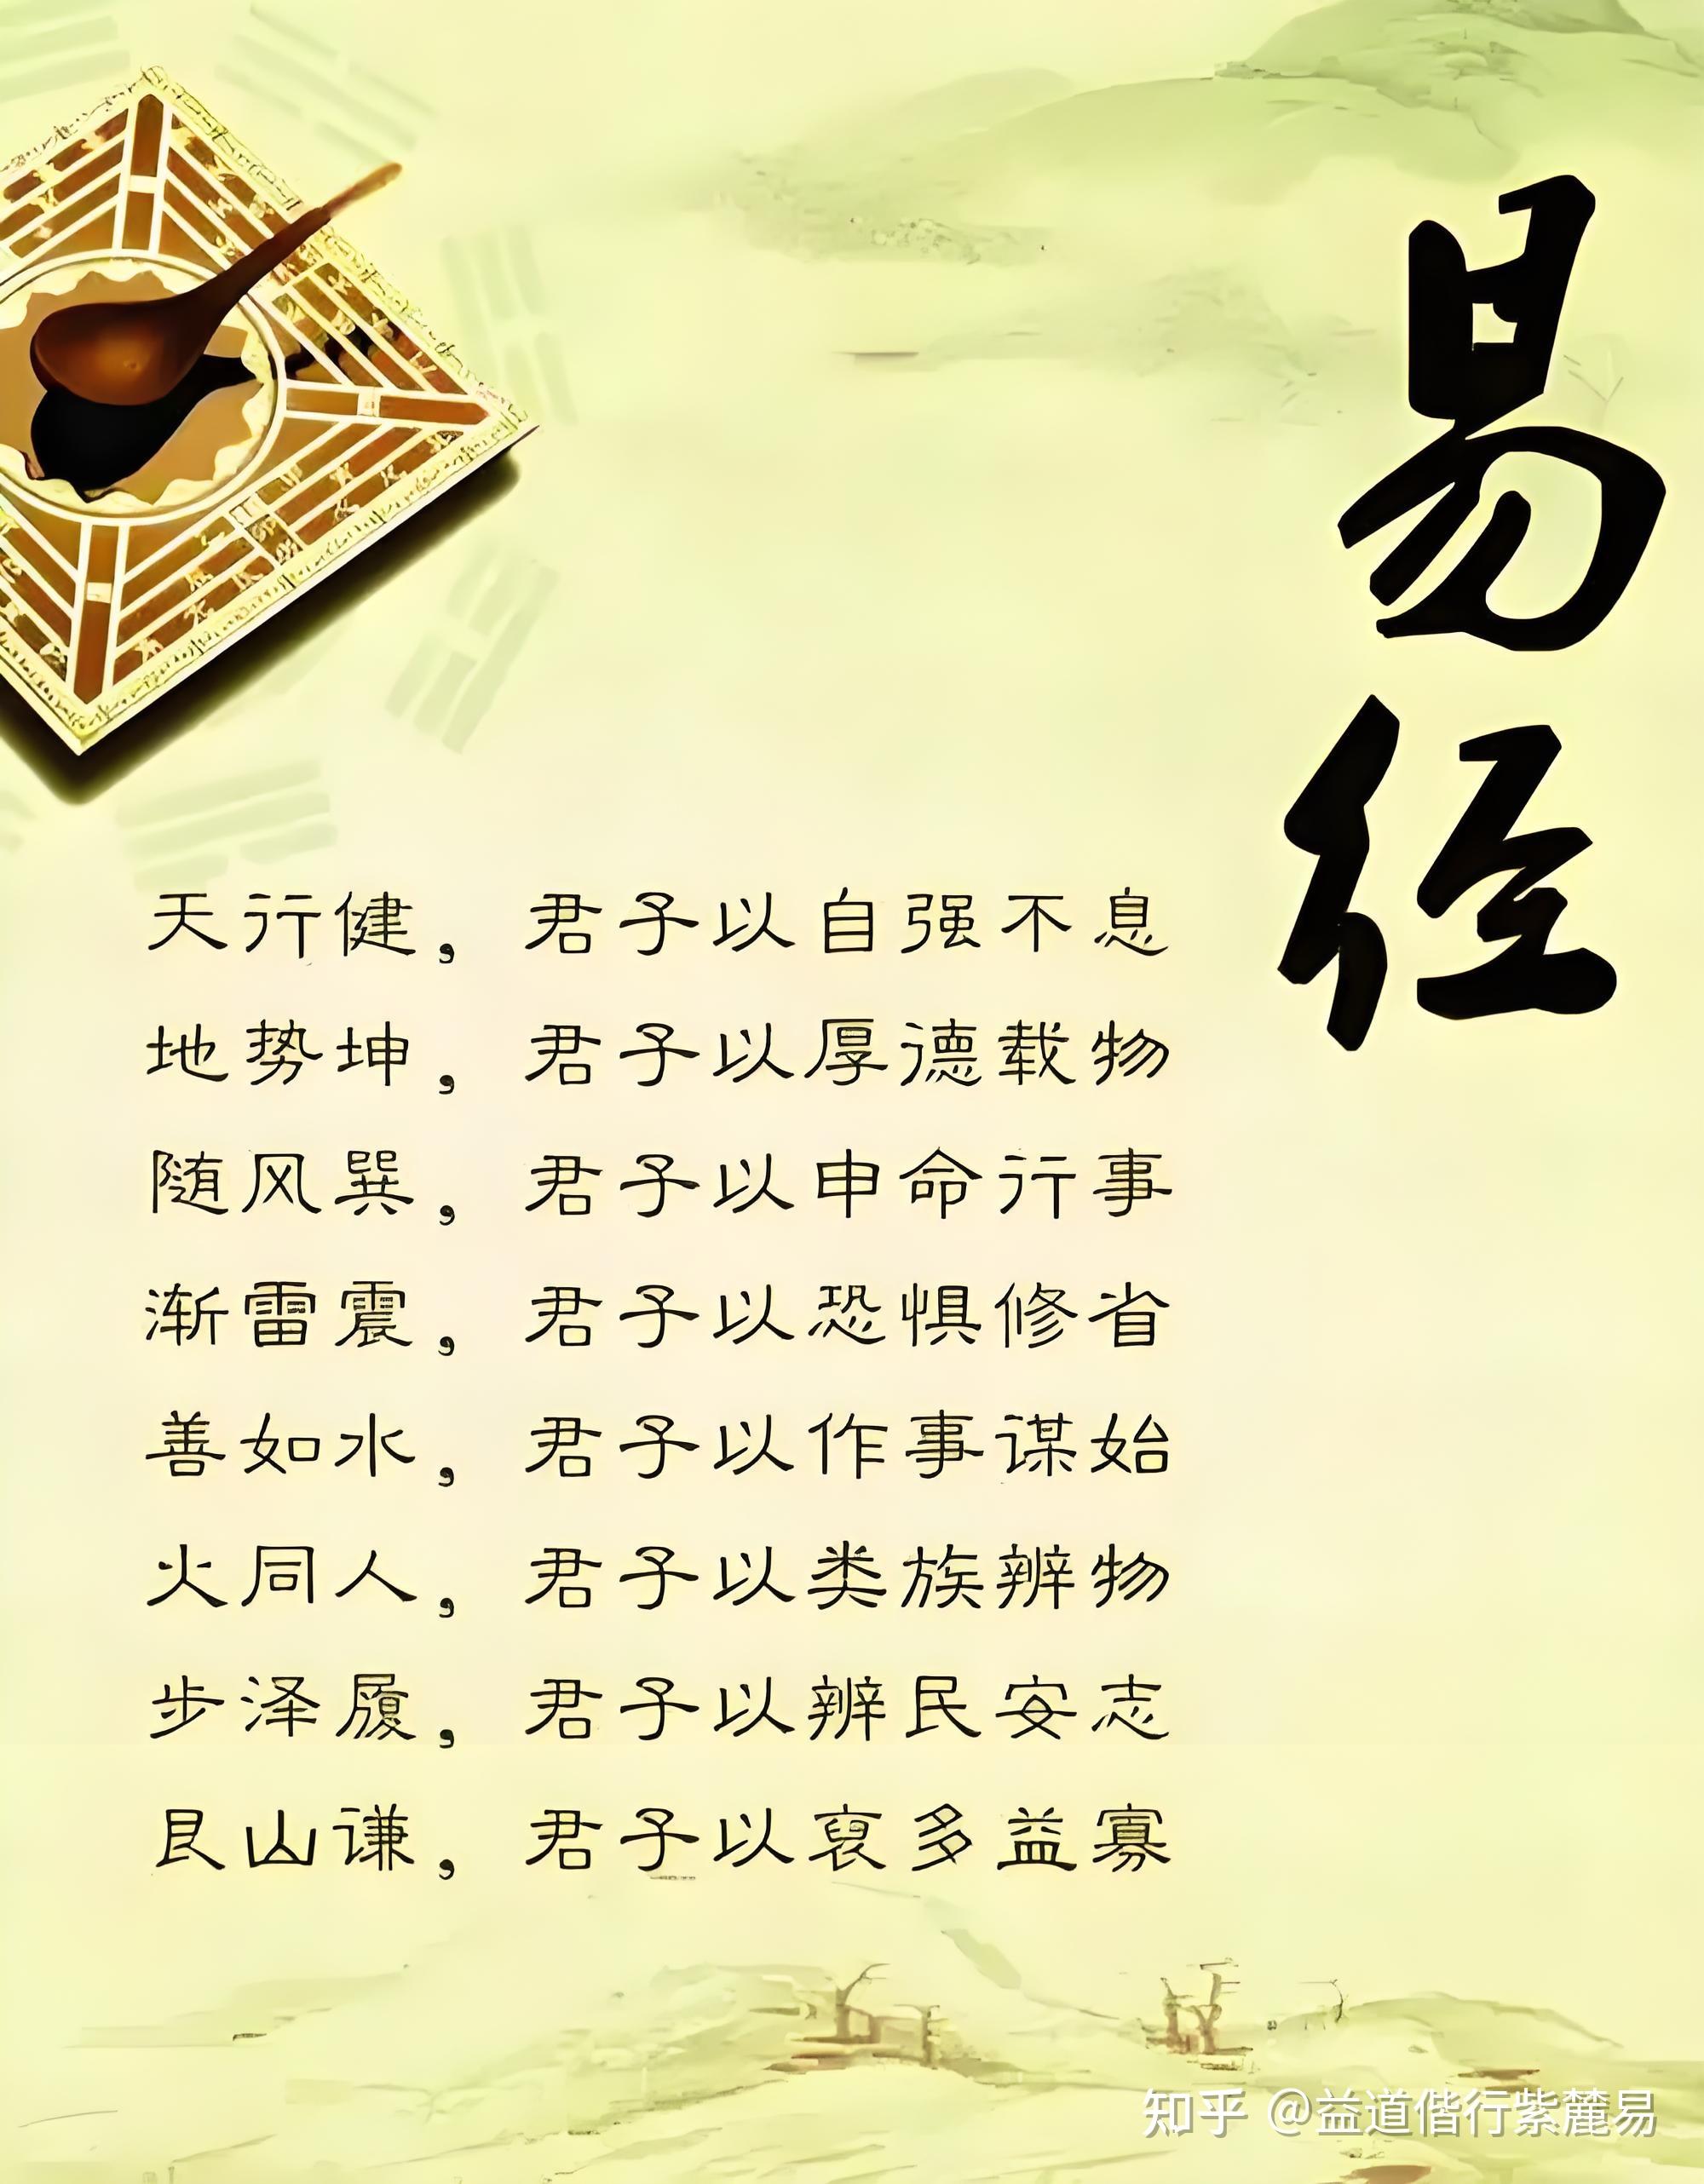 易经
天行健，君子以自强不息
地势坤，君子以厚德载物
随风巽，君子以申命行事
渐雷震，君子以恐惧修省
善如水，君子以作事谋始
火同人，君子以类族辨物
步泽履，君子以辨民安志
艮山谦，君子以裒多益寡
知乎 @益道偕行紫麓易